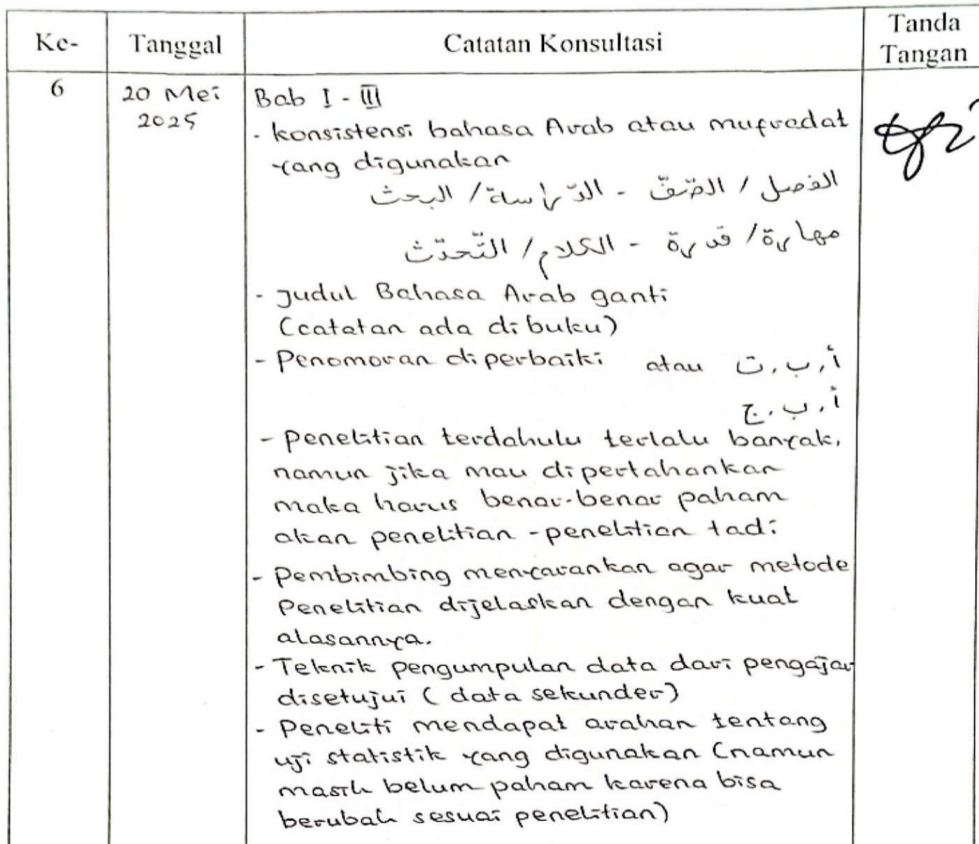 Ke-
Tanggal
Catatan Konsultasi
Tanda
Tangan
6
20 Mei
2025
Bab I - III
- konsistensi bahasa Arab atau mufrodat
yang digunakan
الفصل / الصّفّ - الدّراسة / البحث
مهارة / قدرة - الكلام / التّحدّث
- Judul Bahasa Arab ganti
(catatan ada di buku)
- Penomoran diperbaiki أ، ب، ت atau
أ، ب، ج
- Penelitian terdahulu terlalu banyak,
namun jika mau dipertahankan
maka harus benar-benar paham
akan penelitian-penelitian tadi
- Pembimbing menyarankan agar metode
Penelitian dijelaskan dengan kuat
alasannya.
- Teknik pengumpulan data dari pengajar
disetujui (data sekunder)
- Peneliti mendapat arahan tentang
uji statistik yang digunakan (namun
masih belum paham karena bisa
berubah sesuai penelitian)